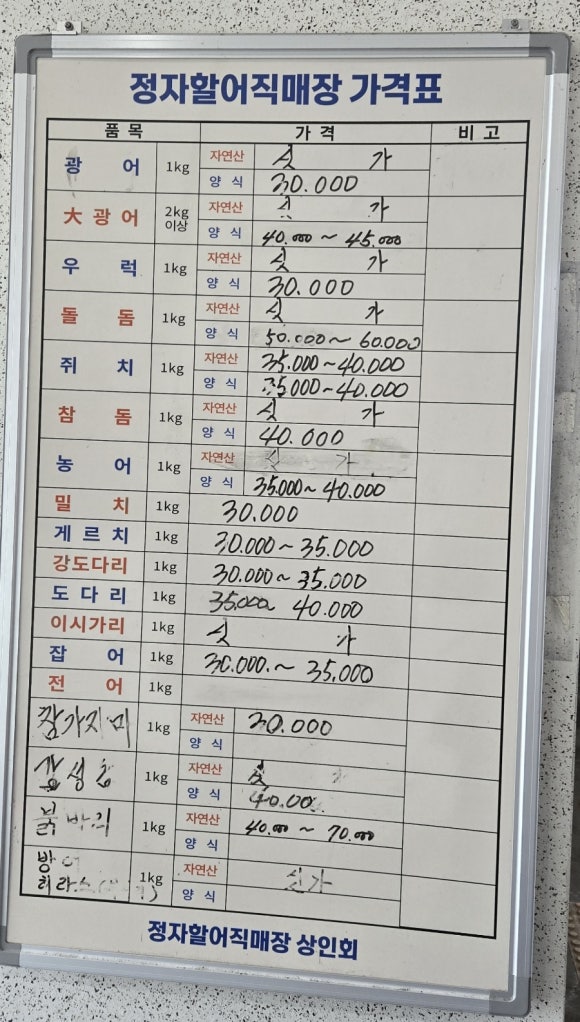 정자활어직매장 가격표
품 목 가 격 비 고
광 어 1kg 자연산 싯 가
양 식 30.000
大 광 어 2kg 이상 자연산 싯 가
양 식 40.000 ~ 45.000
우 럭 1kg 자연산 싯 가
양 식 30.000
돌 돔 1kg 자연산 싯 가
양 식 50.000 ~ 60.000
쥐 치 1kg 자연산 35.000 ~ 40.000
양 식 35.000 ~ 40.000
참 돔 1kg 자연산 싯 가
양 식 40.000
농 어 1kg 자연산 싯 가
양 식 35.000 ~ 40.000
밀 치 1kg 30.000
게 르 치 1kg 30.000 ~ 35.000
강도다리 1kg 30.000 ~ 35.000
도 다 리 1kg 35.000 40.000
이시가리 1kg 싯 가
잡 어 1kg 30.000. ~ 35.000
전 어 1kg
참가자미 1kg 자연산 20.000
양 식
1kg 자연산 싯
양 식 40.00
붉바리 1kg 자연산 40.000 ~ 70.000
양 식
방어
히라스 1kg 자연산 싯가
양 식
정자활어직매장 상인회